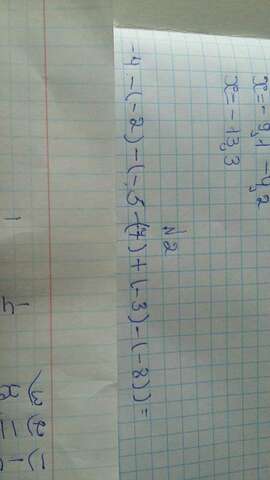 x = -9,1 - 4,2
x = -13,3
№2
-4-(-2)-(-5-(4)+(-3)-(-8))=